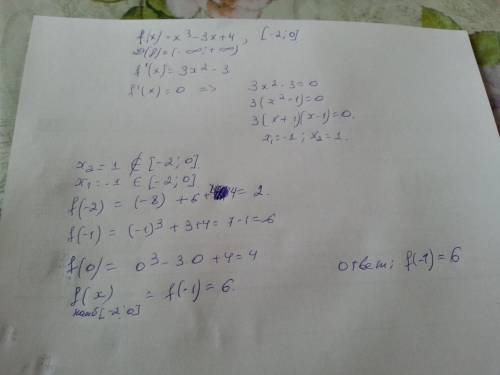 f(x)=x³-3x+4, [-2;0]
D(f)=(-∞;+∞)
f'(x)=3x²-3
f'(x)=0 => 3x²-3=0
3(x²-1)=0
3(x+1)(x-1)=0.
x₁=-1; x₂=1.
x₂=1 ∉ [-2;0]
x₁=-1 ∈ [-2;0]
f(-2) = (-8) + 6 + 4 = 2.
f(-1) = (-1)³ + 3+4 = 7-1=6
f(0) = 0³-3·0+4=4
f(x) = f(-1) = 6.
наиб[-2;0]
ответ: f(-1)=6